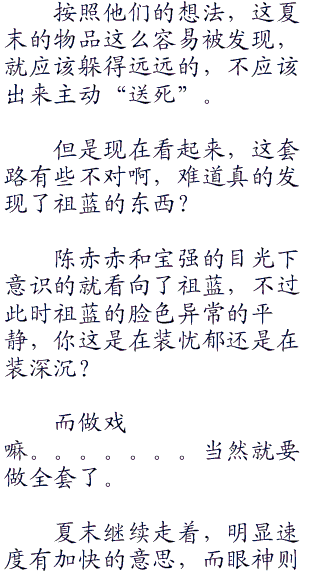 按照他们的想法，这夏
末的物品这么容易被发现，
就应该躲得远远的，不应该
出来主动“送死”。
但是现在看起来，这套
路有些不对啊，难道真的发
现了祖蓝的东西？
陈赤赤和宝强的目光下
意识的就看向了祖蓝，不过
此时祖蓝的脸色异常的平
静，你这是在装忧郁还是在
装深沉？
而做戏
嘛。。。。。。。当然就要
做全套了。
夏末继续走着，明显速
度有加快的意思，而眼神则